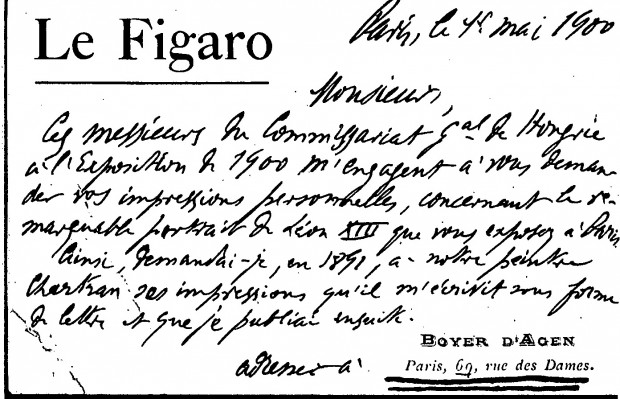 Le Figaro
Paris, le 1er mai 1900
Monsieur,
Ces messieurs du Commissariat Gal de Hongrie
à l'Exposition de 1900 m'engagent à vous deman-
der vos impressions personnelles, concernant le re-
marquable portrait de Léon XIII que vous exposez à Paris
Ainsi, demandai-je, en 1891, à notre peintre
Chartran ses impressions qu'il m'écrivit sous forme
de lettre et que je publiai ensuite.
BOYER D'AGEN
adresser à Paris, 69, rue des Dames.